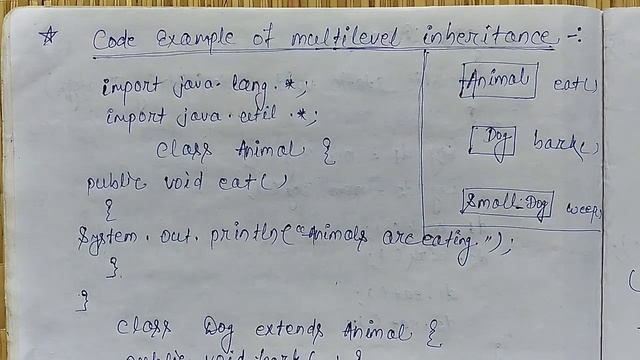 ☆ Code Example of multilevel inheritance -:
import java.lang.*;
import java.util.*;
class Animal {
public void eat()
{
System.out.println("Animals are eating.");
}
}
class Dog extends Animal {
public void bark() {
Animal eat()
Dog bark()
Small-Dog weep